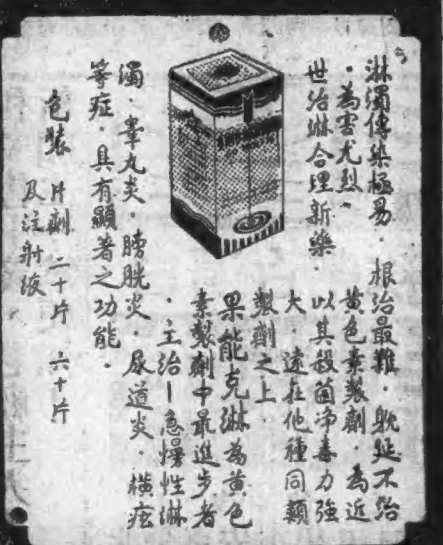 淋濁傳染極易．根治最難．躭延不治
．為害尤烈。黃色素製劑．為近
世治淋合理新藥．以其殺菌淨毒力強
大．遠在他種同類
製劑之上．
果能克淋為黃色
素製劑中最進步者
．主治—急慢性淋
濁．睾丸炎．膀胱炎．尿道炎．橫痃
等症．具有顯著之功能．
包裝 片劑 二十片 六十片
及注射液